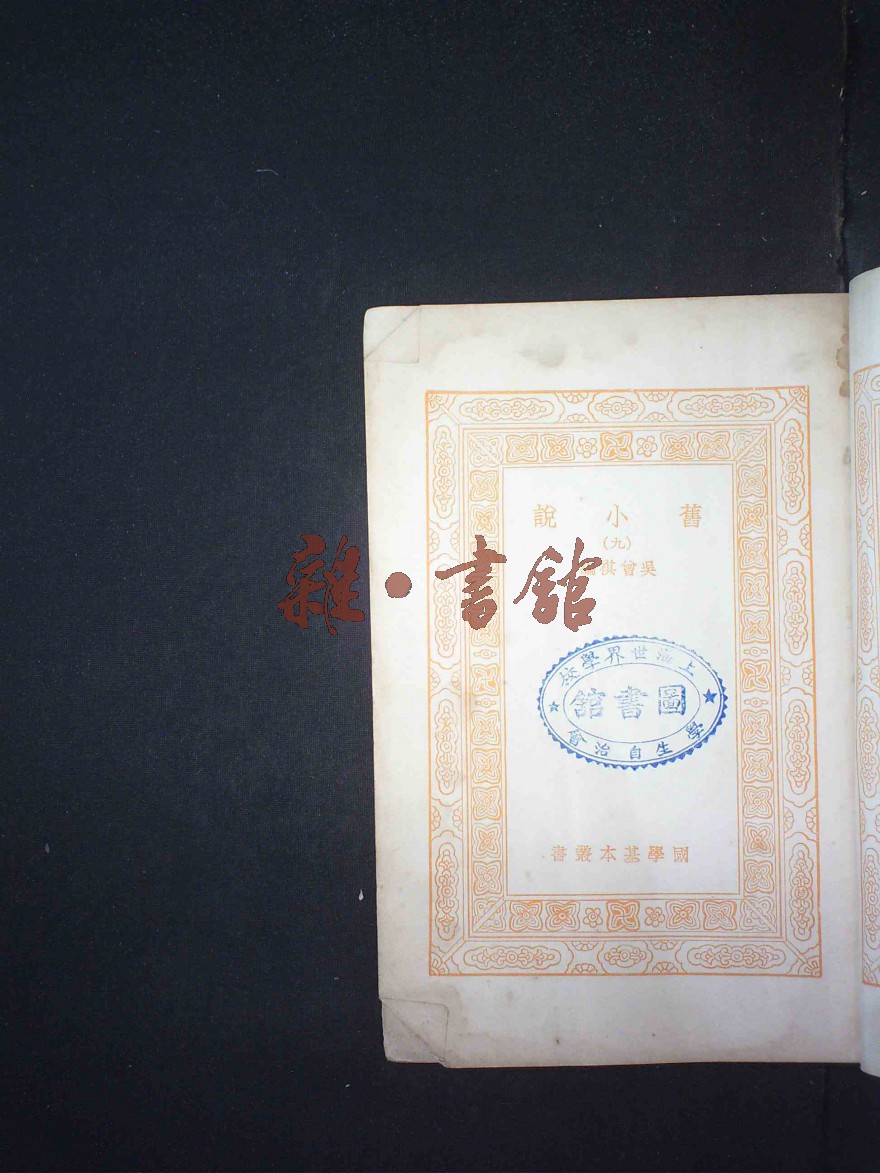 舊小說
(九)
吳曾祺
雜·書館
上海世界學校
圖書館
學生自治會
國學基本叢書